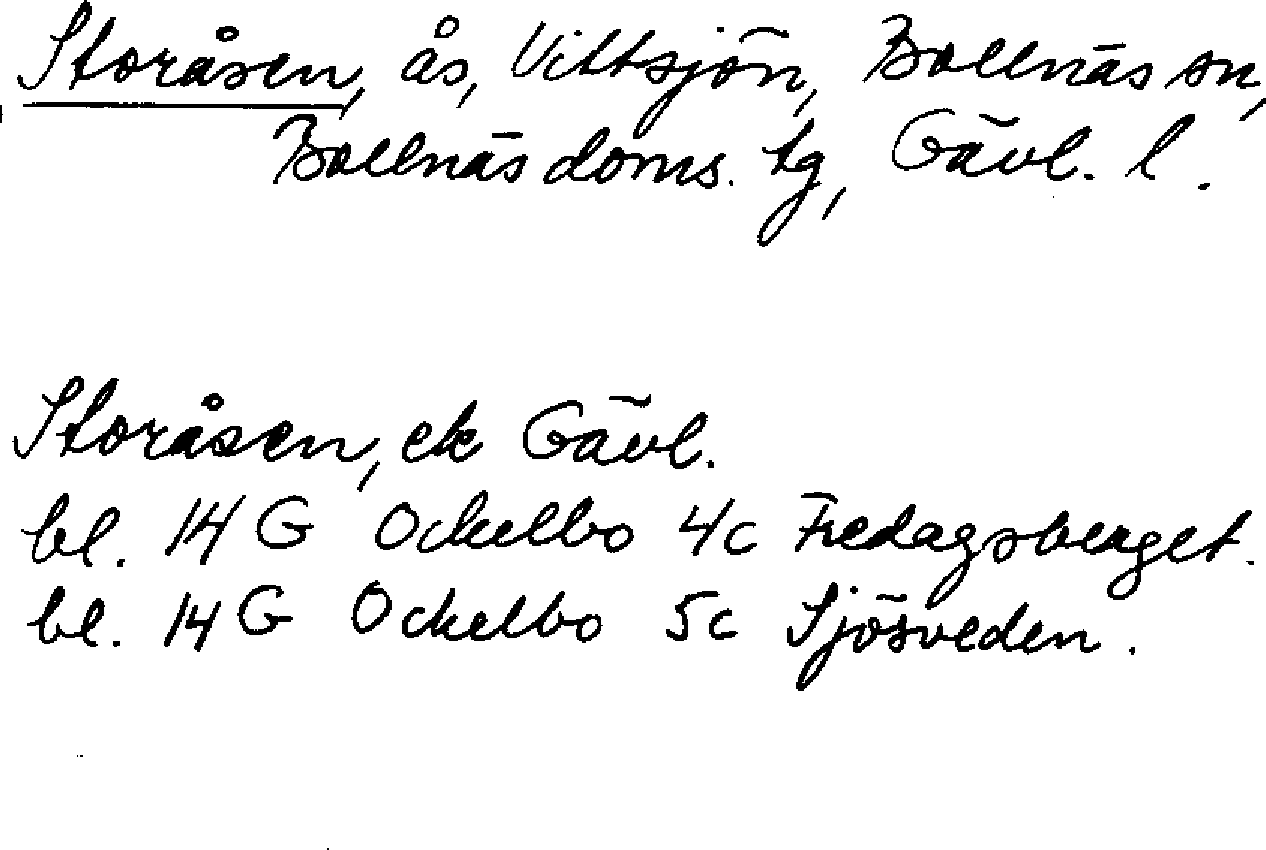 Storåsen, ås, Vittsjön, Bollnäs sn,
Bollnäs doms. tg, Gävl. l.
Storåsen, ek Gävl.
bl. 14 G Ockelbo 4c Fredagsberget.
bl. 14 G Ockelbo 5c Sjösveden.